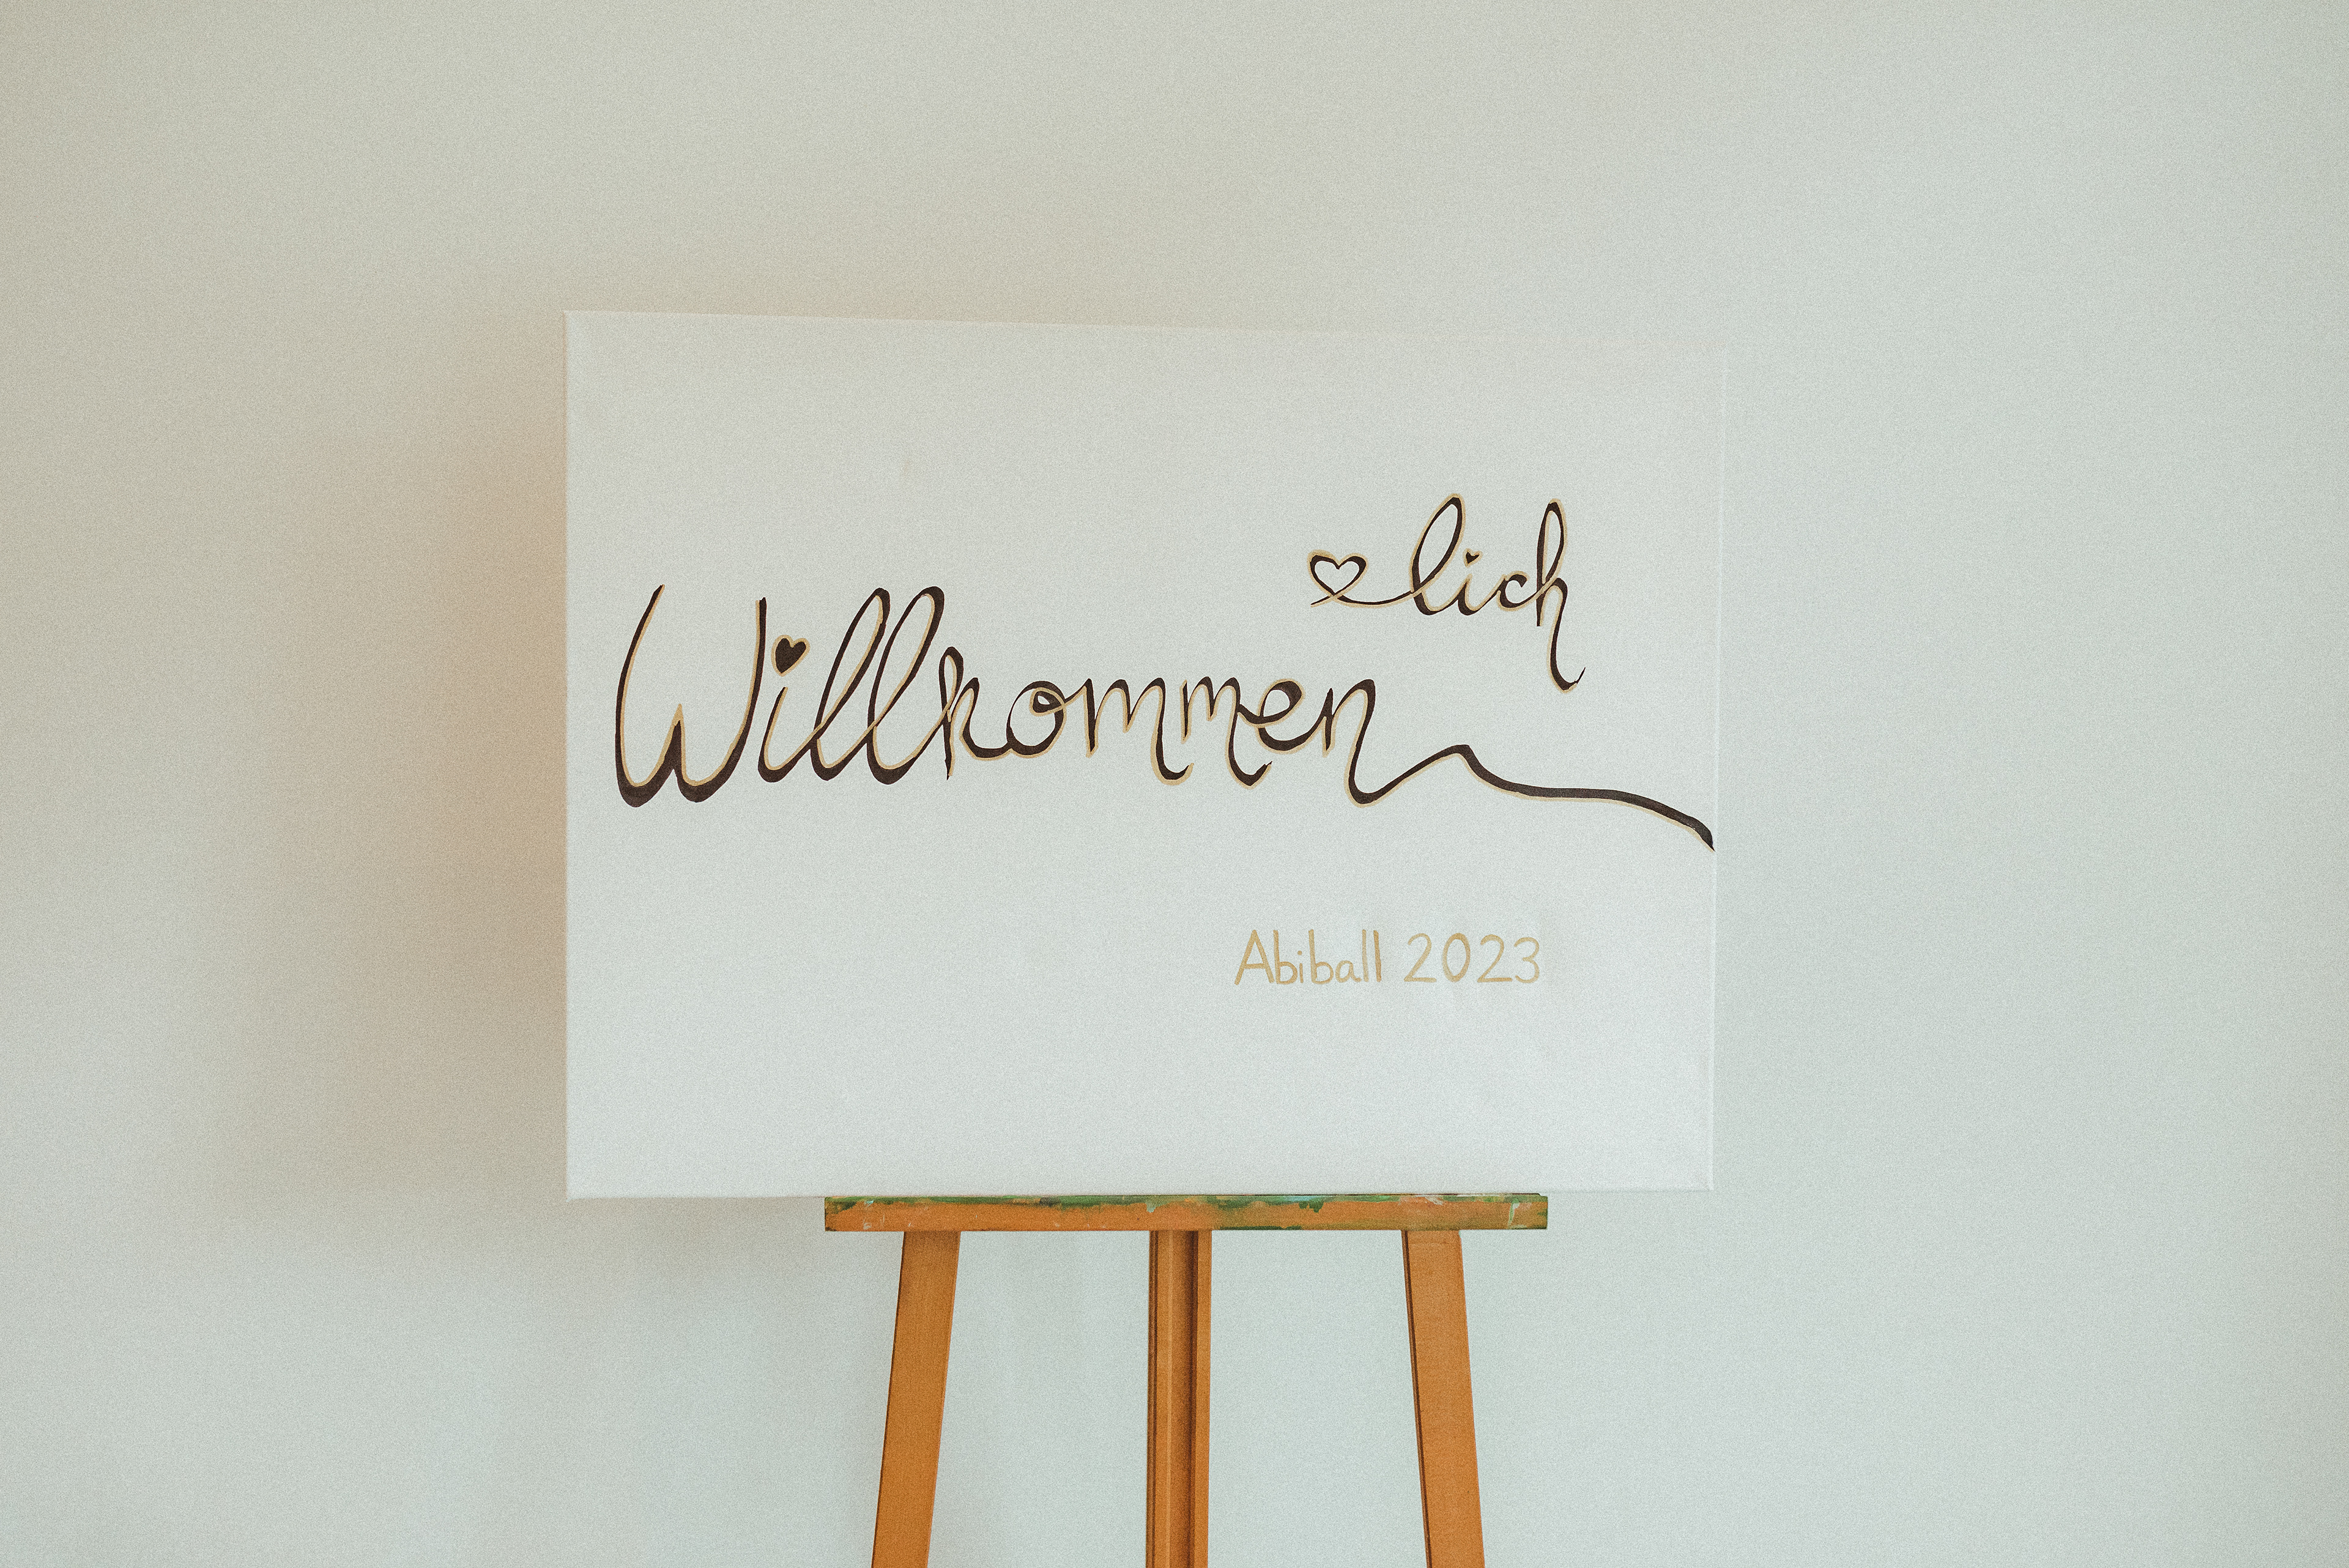 ♡lich
Willkommen
Abiball 2023